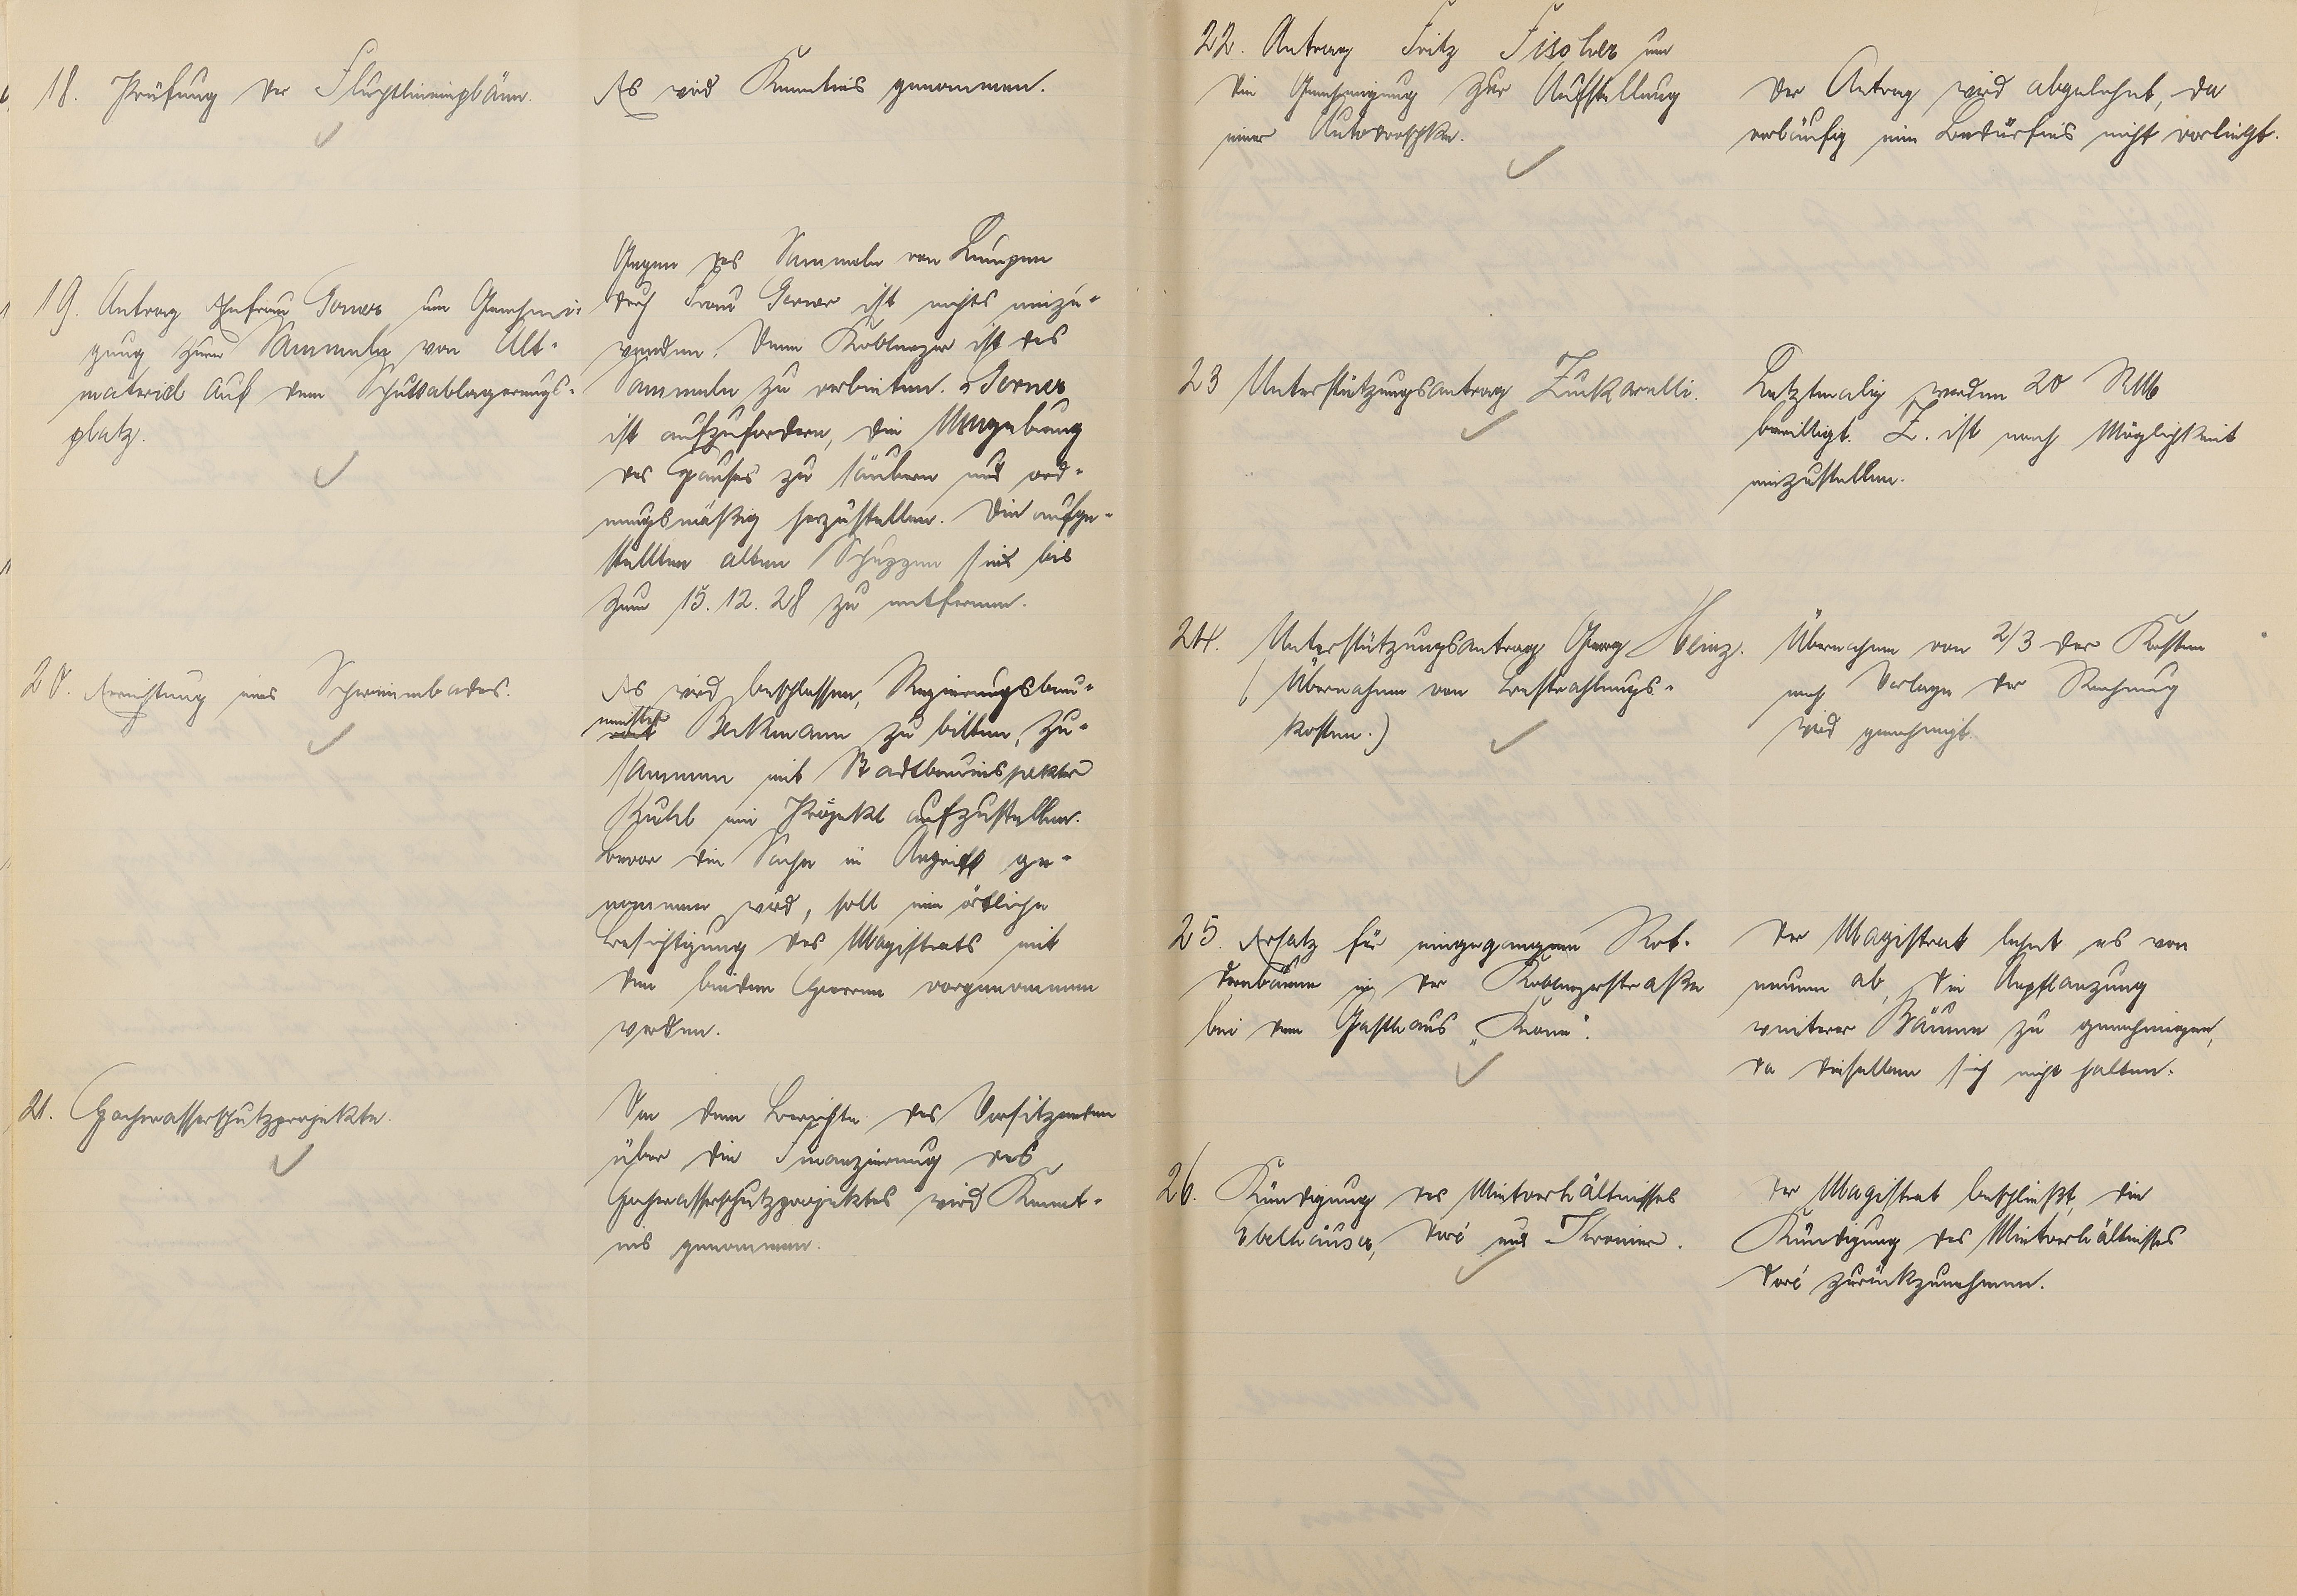 18. Prüfung der Fluchtlinienpläne.
Es wird Kenntnis genommen.
19. Antrag Ehefrau Gorner um Genehmi-
gung zum Sammeln von Alt-
material auf dem Schuttablagerungs-
platz.
Gegen das Sammeln von Lumpen
durch Frau Gorner ist nichts einzu-
wenden. Dem Koblenzer ist das
Sammeln zu verbieten. Gorner
ist aufzufordern, die Umgebung
des Hauses zu säubern und ord-
nungsmäßig herzustellen. Die aufge-
stellten alten Schuppen sind bis
zum 15.12.28 zu entfernen.
20. Errichtung eines Schwimmbades.
Es wird beschlossen, Regierungsbau-
meister Beckmann zu bitten, zu-
sammen mit Stadtbauinspektor
Kuhl ein Projekt aufzustellen.
Bevor die Sache in Angriff ge-
nommen wird, soll eine örtliche
Besichtigung des Magistrats mit
den beiden Herren vorgenommen
werden.
21. Hochwasserschutzprojekte.
Von dem Berichte des Vorsitzenden
über die Finanzierung des
Hochwasserschutzprojektes wird Kennt-
nis genommen.
22. Antrag Fritz Fischer um
die Genehmigung zur Aufstellung
einer Autodroschke.
Der Antrag wird abgelehnt, da
vorläufig ein Bedürfnis nicht vorliegt.
23 Unterstützungsantrag Zuckarelli.
Letztmalig werden 20 RM
bewilligt. Z. ist nach Möglichkeit
einzustellen.
24. Unterstützungsantrag Georg Heinz.
(Übernahme von Bestrahlungs-
kosten.)
Übernahme von 2/3 der Kosten
nach Vorlage der Rechnung
wird genehmigt.
25. Ersatz für eingegangenen Rot-
dornbäume in der Koblenzerstraße
bei dem Gasthaus „Krone".
Der Magistrat lehnt es von
neuem ab, die Anpflanzung
weiterer Bäume zu genehmigen,
da dieselben sich nicht halten.
26. Kündigung des Mietverhältnisses
Ebelhäuser, Doré und Kronier.
Der Magistrat beschließt, die
Kündigung des Mietverhältnisses
Doré zurückzunehmen.